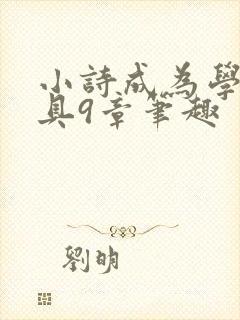 小詩成為學
具9章筆趣
劉明